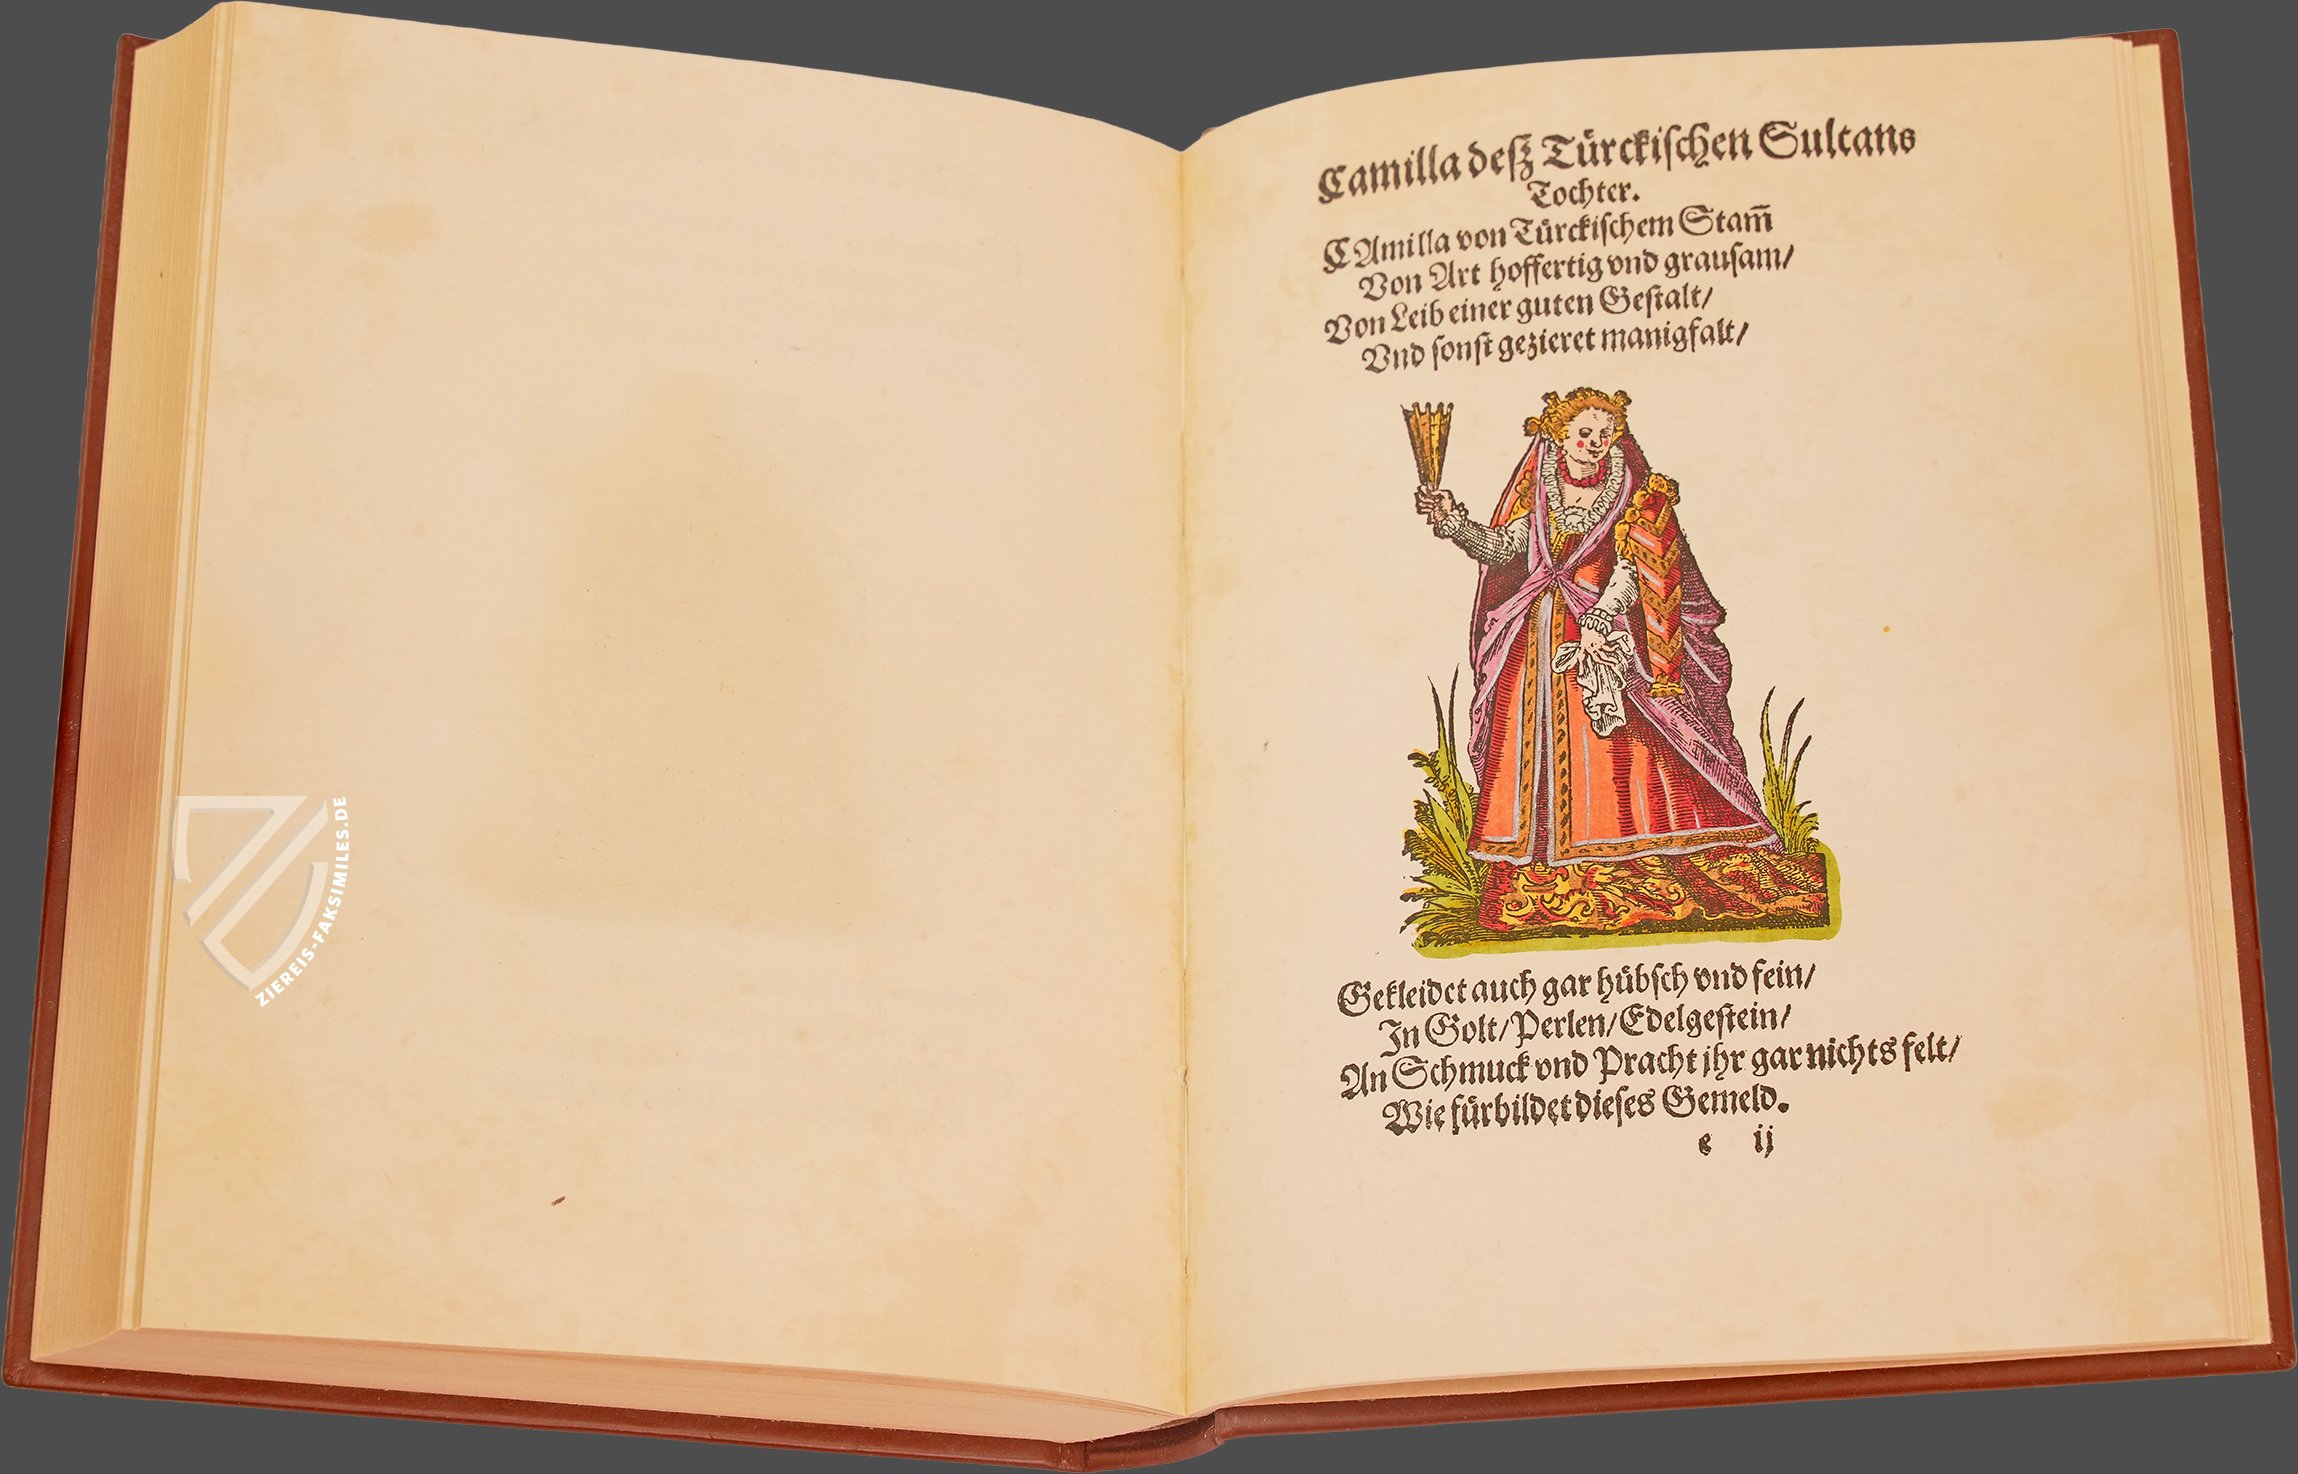 Camilla deſz Türckiſchen Sultans
Tochter.
CAmilla von Türckiſchem Stam̄
Von Art hoffertig vnd grauſam/
Von Leib einer guten Geſtalt/
Vnd ſonſt gezieret manigfalt/
Gekleidet auch gar hübſch vnd fein/
In Golt/Perlen/Edelgeſtein/
An Schmuck vnd Pracht jhr gar nichts felt/
Wie fürbildet dieſes Gemeld.
e ij
ZIEREIS-FAKSIMILES.DE